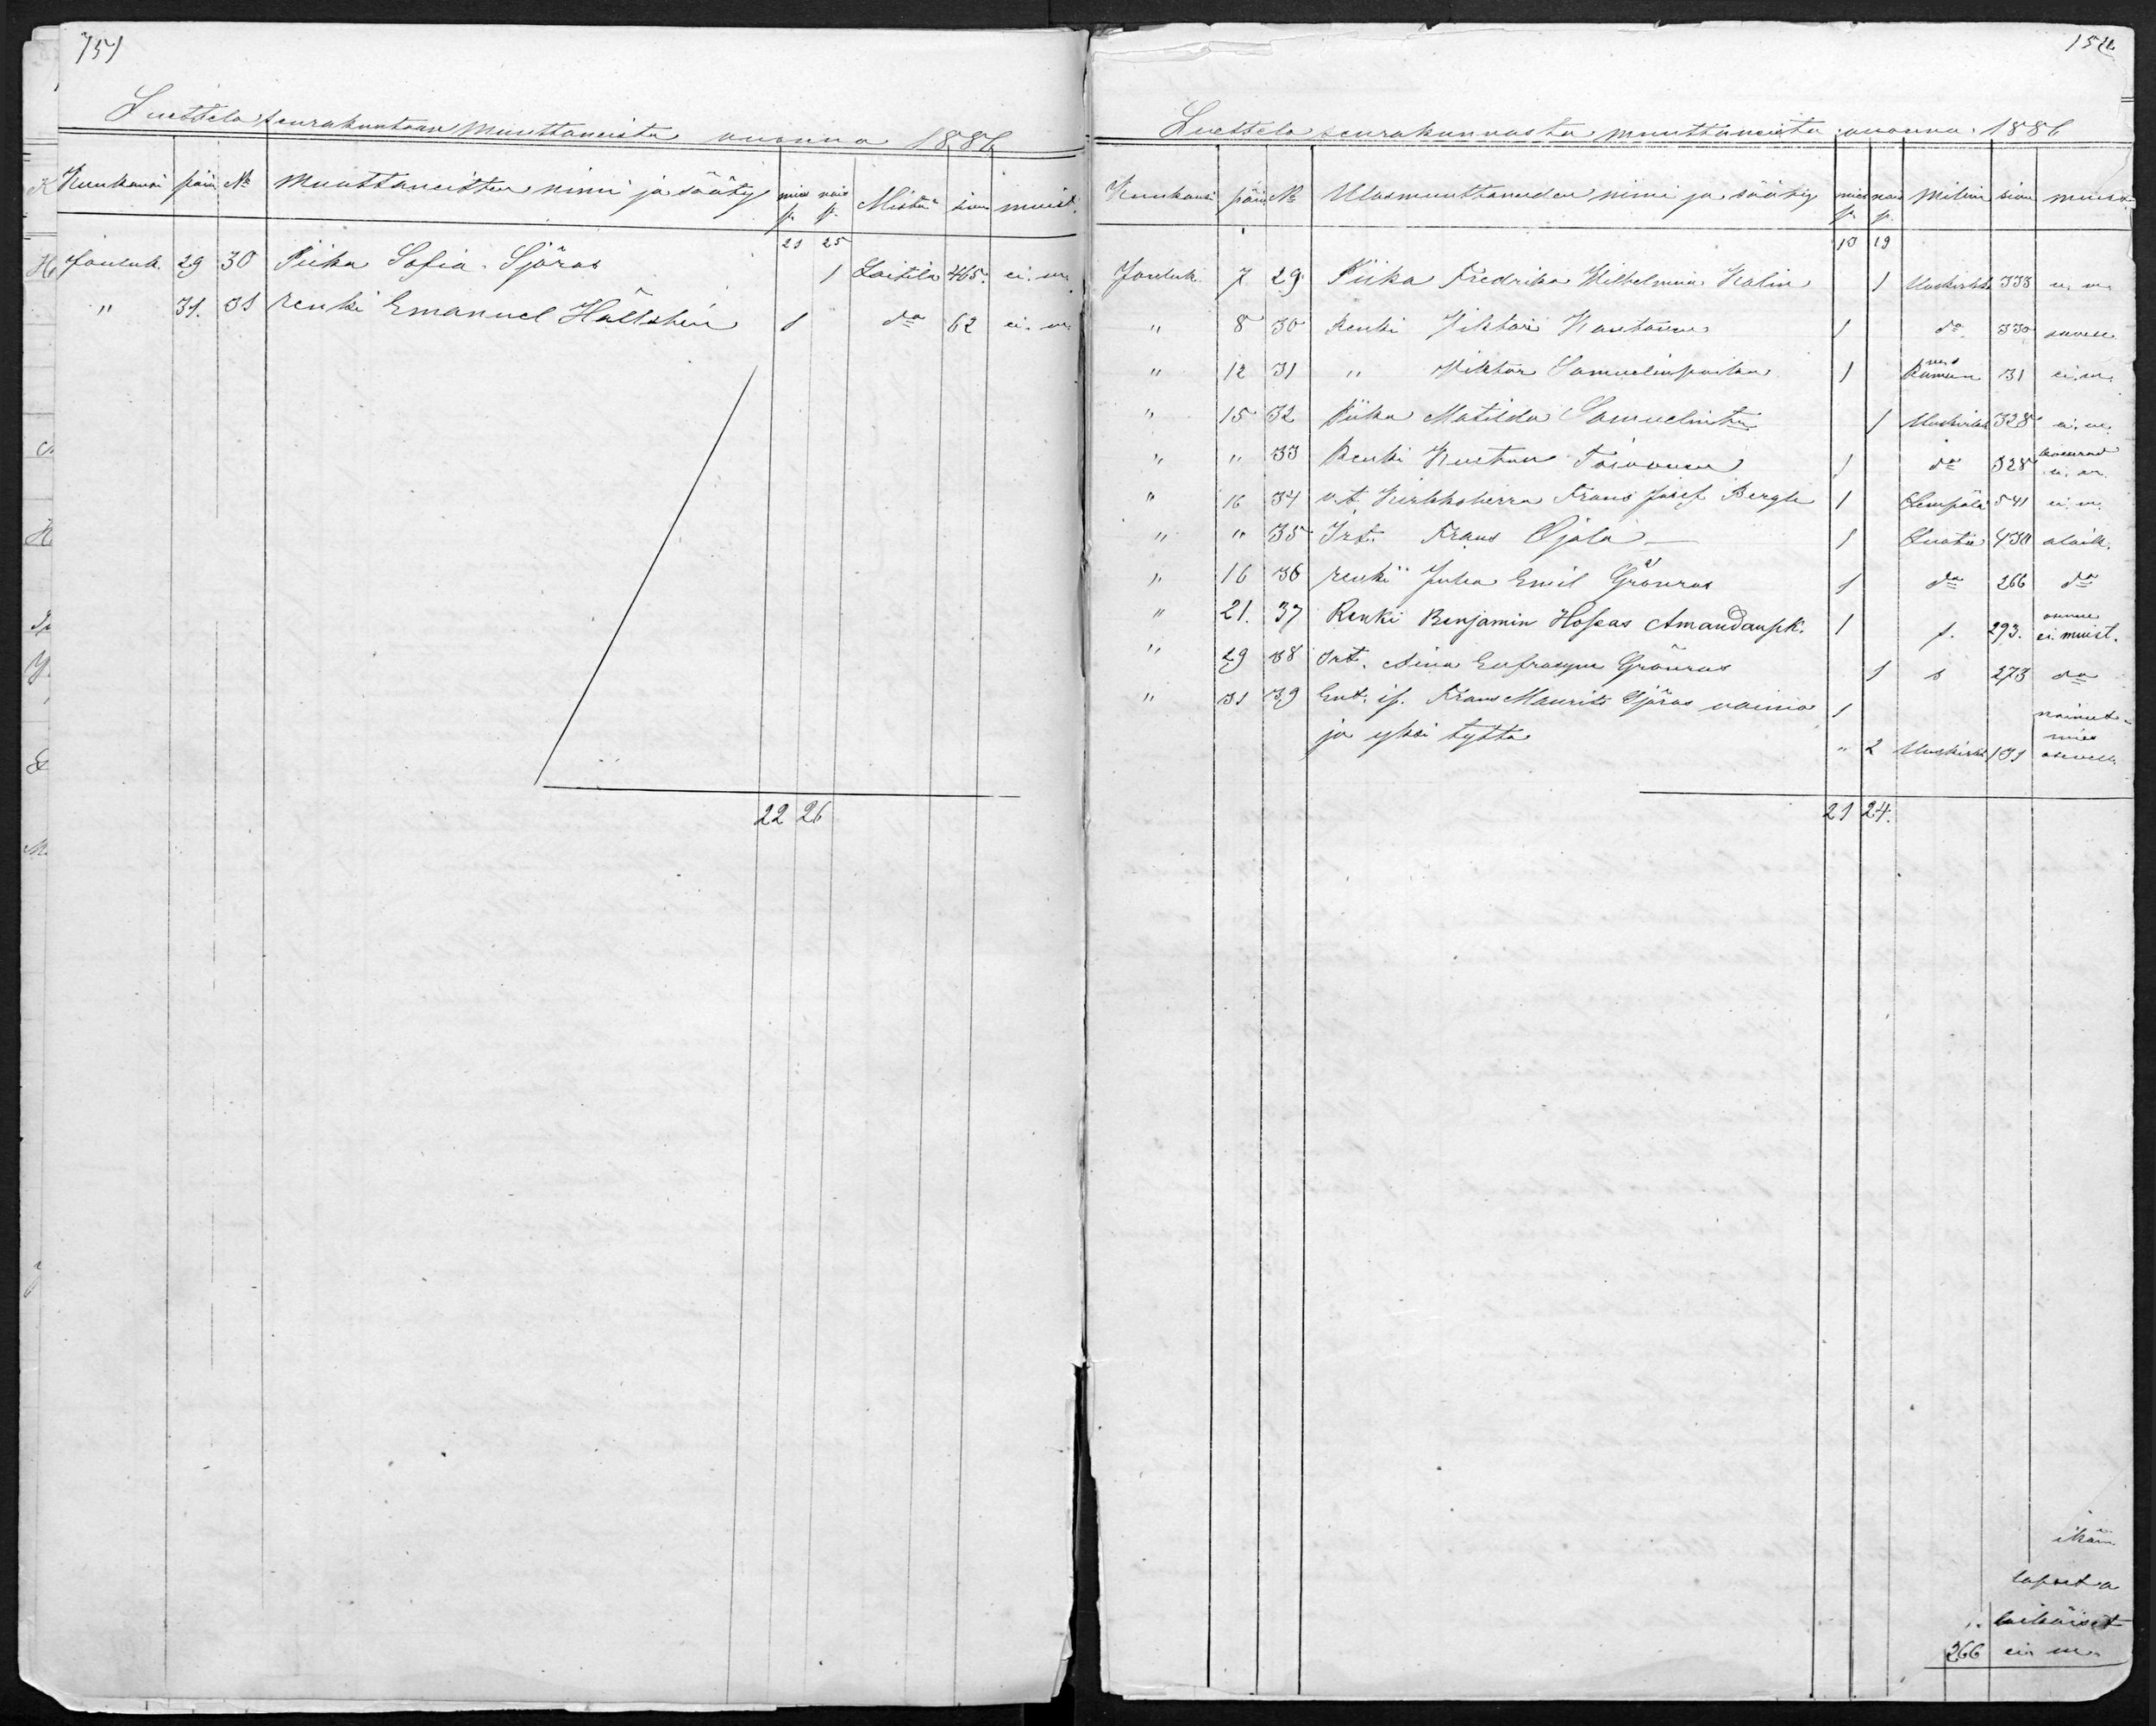 151
Luettelo seurakuntaan muuttaneista vuonna 1886
Kuukausi päiv № Muuttaneitten nimi ja sääty mies p. nais p. Mistä sivu muist.
21 25
Jouluk. 29 30 Piika Sofia Sjöros 1 Laitila 465. ei. m.
" 31. 31 renki Emanuel Hällsten 1 do 62 ei. m.
22 26
152
Luettelo seurakunnasta muuttaneista vuonna 1886
Kuukausi päiv № Ulosmuuttaneiden nimi ja sääty mies p. nais p. Mihin sivu muist.
13 19
Jouluk. 7 29 Piika Fredrika Wilhelmina Kalin 1 Uusikirkk 333 ei. m.
" 8 30 Renki Viktori 1 do 330
" 12 31 " Viktor Samuelinpoika 1 Rauman 131 ei. m.
" 15 32 Piika Matilda Samuelint. 1 Uusikirkk 328 ei. m.
" " 33 Renki Kustaa Toivonen 1 do 328 ei. m.
" 16 34 v.t. Kirkkoherra Frans Josef Bergh 1 Lempäälä 541 ei. m.
" " 35 Irt. Frans Ojala 1 430 alaik.
" 16 36 renki Juha Emil Grönroos 1 do 266 do
" 21. 37 Renki Benjamin Hoseas Amandanpk. 1 f. 293. ei muist.
" 29 38 Irt. Aina Eufrosyne Grönroos 1 s 273 do
" 31 39 Ent. is. Frans Maurits Sjöros vaimo 1
ja yksi tyttö " 2 Uusikirkk 131 mies
21 24.
lapset a
laikäiset
266 ei m.